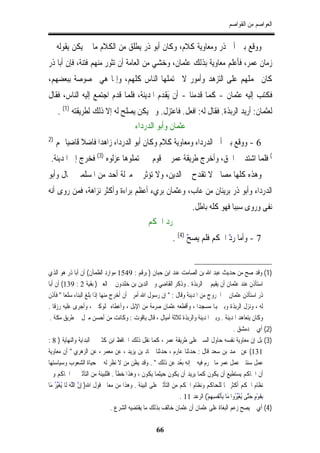 العواصم من القواصم
ووقع ب أ ذر ومعاوية كلام، وكان أبو ذر يطلق من الكلام ما يكن يقوله
زمان عمر، فأعلم معاوية بذلك عثمان، وخشي من العامة أن تثور منهم فتنة، فإن أبا ذر
كان ملهم على التزهد وأمور لا تملها الناس كلهم، وإ ا هي صوصة ببعضهم،
فكتب إليه عثمان - كما قدمنا - أن يقدم ا دينة، فلما قدم اجتمع إليه الناس، فقال
لعثمان: أريد الربذة. فقال له: افعل. فاعتزل. و يكن يصلح له إلا ذلك لطريقته (1) .
عثمان وأبو الدرداء
6 - ووقع ب أ الدرداء ومعاوية كلام وكان أبو الدرداء زاهدا فاضلا قاضيا م (2
) فلما اشتد ا ق، وأخرج طريقة عمر قوم تملوها عزلوه (3) فخرج إ ا دينة.
وهذه كلها مصا لا تقدح الدين، ولا تؤثر م لة أحد من ا سلم ال وأبو
الدرداء وأبو ذر بريئان من عاب، وعثمان بريء أعظم براءة وأكثر نزاهة، فمن روى أنه
نفى وروى سببا فهو كله باطل.
رد ا كم
7 - وأما ردّ ا كم فلم يصحّ (4) .
(1) وقد صح من حديث عبد الله بن الصامت عند ابن حبان ( برقم : 1549 موارد الظمآن) أن أبا ذر هو الذي
استأذن عند عثمان أن يقيم الربذة . وذكر القاضي و الدين بن خلدون الع ٠ (بقية 2 : 139) أن أبا
ذر استأذن عثمان ا روج من ا دينة وقال : " إن رسول الله أمر أن أخرج منها إذا بلغ البناء سلعا " فأذن
له ، ونزل الربذة وب بها مسجدا ، وأقطعه عثمان صرمة من الإبل ، وأعطاه لوك ، وأجرى عليه رزقا .
وكان يتعاهد ا دينة . وب ا دينة والربذة ثلاثة أميال ، قال ياقوت : وكانت من أحسن م ل طريق مكة .
(2) أي دمشق .
(3) بل إن معاوية نفسه حاول الس على طريقة عمر ، كما نقل ذلك ا افظ ابن كث البداية والنهاية ( 8 :
131) عن مد بن سعد قال : حدثنا عارم ، حدثنا اد بن يزيد ، عن معمر ، عن الزهري " أن معاوية
عمل سنت عمل عمر ما رم فيه إنه بعُد عن ذلك " . وقد يظن من لا نظر له حياة الشعوب وسياستها
أن ا اكم يستطيع أن يكون كما يريد أن يكون حيثما يكون ، وهذا خطأ . فللبيئة من التأث ا اكم و
نظام ا كم أكثر ا للحاكم ونظام ا كم من التأث على البيئة . وهذا من معا قول الله إِنَّ اللَّهَ لَا يُغَيِّرُ مَا
بِقَوْمٍ حَتَّى يُغَيِّرُوا مَا بِأَنْفُسِهِمْ) الرعد 11 .
(4) أي يصح زعم البغاة على عثمان أن عثمان خالف بذلك ما يقتضيه الشرع .
66